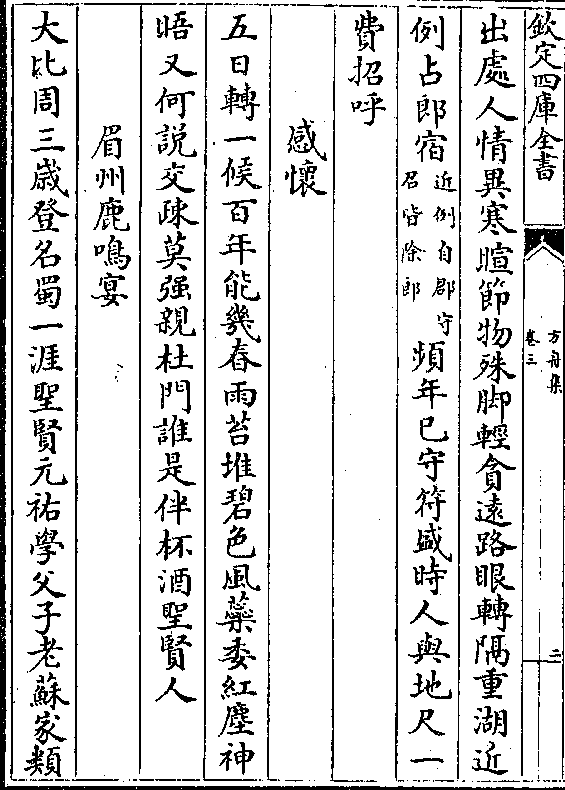 欽定四庫全書
方舟集
卷三
二
出處人情異寒暄節物殊脚輕貪遠路眼轉隔重湖近
例占郎宿近例自郡守召皆除郎頻年已守符盛時人與地尺一
費招呼
感懷
五日轉一候百年能幾春雨苔堆碧色風蘂委紅塵神
晤又何説交疎莫强親杜門誰是伴杯酒聖賢人
眉州鹿鳴宴
大比周三歳登名蜀一涯聖賢元祐學父子老蘇家類